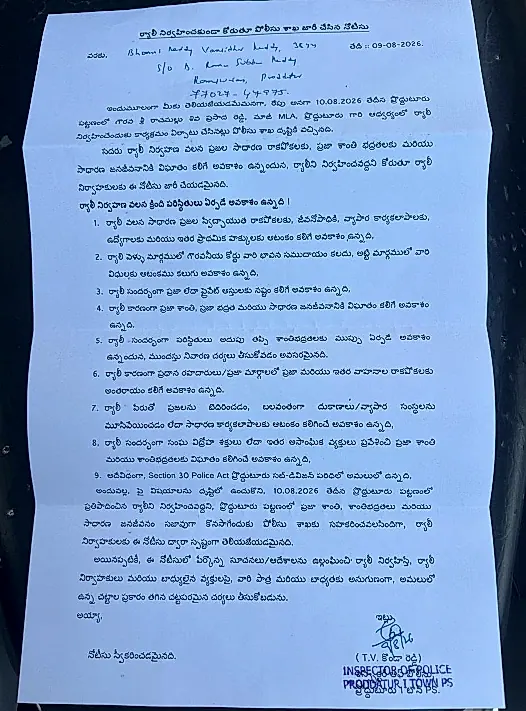 ర్యాలీ నిర్వహించకుండా కోరుతూ పోలీసు శాఖ జారీ చేసిన నోటీసు
వరకు, Bhumi Reddy Vamsidhar Reddy, 38 yrs తేది :- 09-08-2026.
S/o B. Rama Subba Reddy
Proddatur
77027-47975.
ఇందుమూలంగా మీకు తెలియజేయడమేమనగా, రేపు అనగా 10.08.2026 తేదీన ప్రొద్దుటూరు
పట్టణంలో గౌరవ శ్రీ రాచమల్లు శివ ప్రసాద్ రెడ్డి, మాజీ MLA, ప్రొద్దుటూరు గారి ఆధ్వర్యంలో ర్యాలీ
నిర్వహించేందుకు కార్యక్రమం ఏర్పాటు చేసినట్లు పోలీసు శాఖ దృష్టికి వచ్చింది.
సదరు ర్యాలీ నిర్వహణ వలన ప్రజల సాధారణ రాకపోకలకు, ప్రజా శాంతి భద్రతలకు మరియు
సాధారణ జనజీవనానికి విఘాతం కలిగే అవకాశం ఉన్నందున, ర్యాలీని నిర్వహించవద్దని కోరుతూ ర్యాలీ
నిర్వాహకులకు ఈ నోటీసు జారీ చేయడమైనది.
ర్యాలీ నిర్వహణ వలన క్రింది పరిస్థితులు ఏర్పడే అవకాశం ఉన్నది !
1. ర్యాలీ వలన సాధారణ ప్రజల స్వేచ్ఛాయుత రాకపోకలకు, జీవనోపాధికి, వ్యాపార కార్యకలాపాలకు,
ఉద్యోగాలకు మరియు ఇతర ప్రాథమిక హక్కులకు ఆటంకం కలిగే అవకాశం ఉన్నది.
2. ర్యాలీ వెళ్ళు మార్గములో గౌరవనీయ కోర్టు వారి భావన సముదాయం కలదు, అట్టి మార్గములో వారి
విధులకు ఆటంకము కలుగు అవకాశం ఉన్నది,
3. ర్యాలీ సందర్భంగా ప్రజా లేదా ప్రైవేట్ ఆస్తులకు నష్టం కలిగే అవకాశం ఉన్నది,
4. ర్యాలీ కారణంగా ప్రజా శాంతి, ప్రజా భద్రత మరియు సాధారణ జనజీవనానికి విఘాతం కలిగే అవకాశం
ఉన్నది.
5. ర్యాలీ సందర్భంగా పరిస్థితులు అదుపు తప్పి శాంతిభద్రతలకు ముప్పు ఏర్పడే అవకాశం
ఉన్నందున, ముందస్తు నివారణ చర్యలు తీసుకోవడం అవసరమైనది.
6. ర్యాలీ కారణంగా ప్రధాన రహదారులు/ప్రజా మార్గాలలో ప్రజా మరియు ఇతర వాహనాల రాకపోకలకు
అంతరాయం కలిగే అవకాశం ఉన్నది.
7. ర్యాలీ పేరుతో ప్రజలను బెదిరించడం, బలవంతంగా దుకాణాలు/వ్యాపార సంస్థలను
మూసివేయించడం లేదా సాధారణ కార్యకలాపాలకు ఆటంకం కలిగించే అవకాశం ఉన్నది,
8. ర్యాలీ సందర్భంగా సంఘ విద్రోహ శక్తులు లేదా ఇతర అసాంఘిక వ్యక్తులు ప్రవేశించి ప్రజా శాంతి
మరియు శాంతిభద్రతలకు విఘాతం కలిగించే అవకాశం ఉన్నది.
9. అదేవిధంగా, Section 30 Police Act ప్రొద్దుటూరు సబ్-డివిజన్ పరిధిలో అమలులో ఉన్నది,
అందువల్ల, పై విషయాలను దృష్టిలో ఉంచుకొని, 10.08.2026 తేదీన ప్రొద్దుటూరు పట్టణంలో
ప్రతిపాదించిన ర్యాలీని నిర్వహించవద్దని, ప్రొద్దుటూరు పట్టణంలో ప్రజా శాంతి, శాంతిభద్రతలు మరియు
సాధారణ జనజీవనం సజావుగా కొనసాగేందుకు పోలీసు శాఖకు సహకరించవలసిందిగా, ర్యాలీ
నిర్వాహకులకు ఈ నోటీసు ద్వారా స్పష్టంగా తెలియజేయడమైనది.
అయినప్పటికీ, ఈ నోటీసులో పేర్కొన్న సూచనలు/ఆదేశాలను ఉల్లంఘించి ర్యాలీ నిర్వహిస్తే, ర్యాలీ
నిర్వాహకులు మరియు బాధ్యులైన వ్యక్తులపై, వారి పాత్ర మరియు బాధ్యతకు అనుగుణంగా, అమలులో
ఉన్న చట్టాల ప్రకారం తగిన చట్టపరమైన చర్యలు తీసుకోబడును.
అయ్యా,
ఇట్లు
9/8/26
నోటీసు స్వీకరించడమైనది.
( T.V. కొండా రెడ్డి)
INSPECTOR OF POLICE
PRODDATUR I TOWN PS
ప్రొద్దుటూరు I టౌన్ PS.